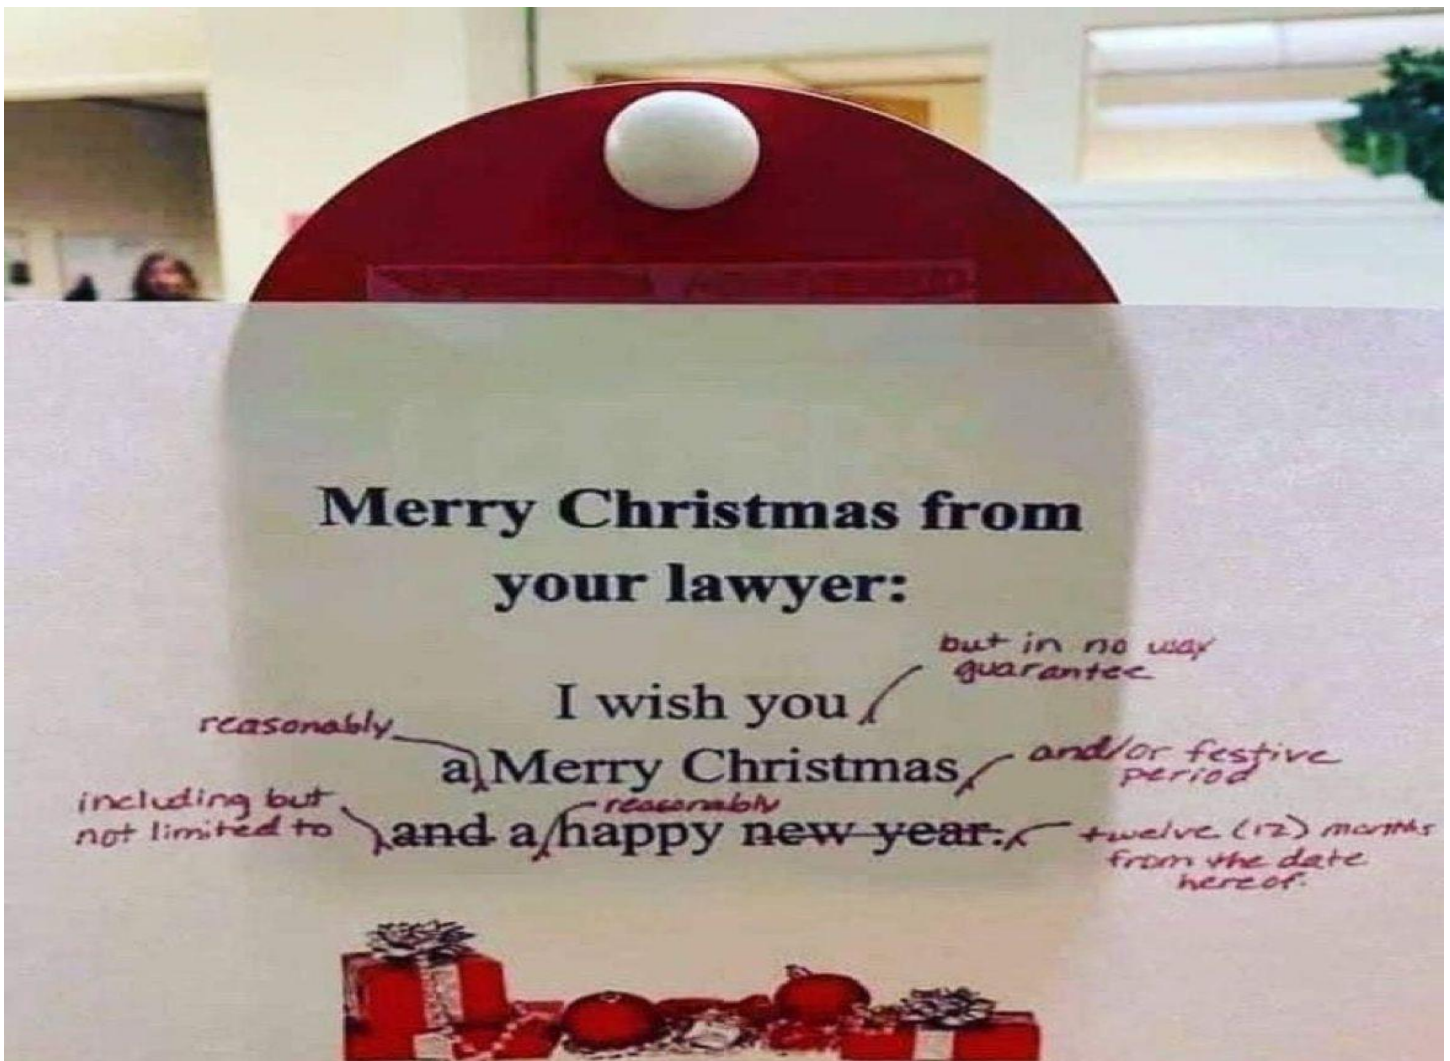 Merry Christmas from
your lawyer:
but in no way
guarantee
I wish you
reasonably
a Merry Christmas
and/or festive
period
including but
not limited to
reasonably
and a happy new year.
twelve (12) months
from the date
hereof.